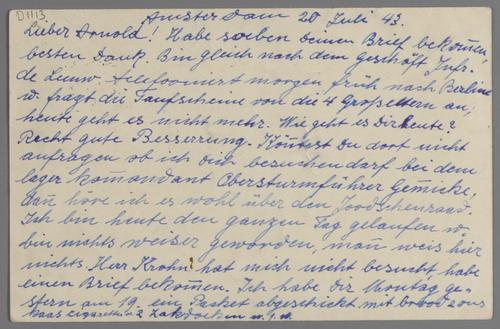 D1113
Amsterdam 20 Juli 43.
Lieber Arnold! Habe soeben deinen Brief bekommen,
besten Dank. Bin gleich nach dem geschäft Juhr.
de Leeuw. telefooniert morgen früh nach Berlin
w. fragt, die Taufscheine von die 4 Groszeltern an,
heute geht es nicht mehr. Wie geht es Dir heute?
Recht gute Besserung. Köntest du dort nicht
anfragen ob ich dich besuchen darf bei dem
leger kommandant Obersturmführer Gemicke,
dan höre ich es wohl über den Joodschenraad.
Ich bin heute den ganzen Tag gelaufen w.
bin nichts weiser geworden, man weis hier
nichts. Herr Krohn hat mich nicht besucht, habe
einen Brief bekommen. Ich habe dir Montag ge-
stern am 19. ein Packet abgeschickt mit brood 2 ons
kaas cigaretten 2 Zakdoeken u.s.w.